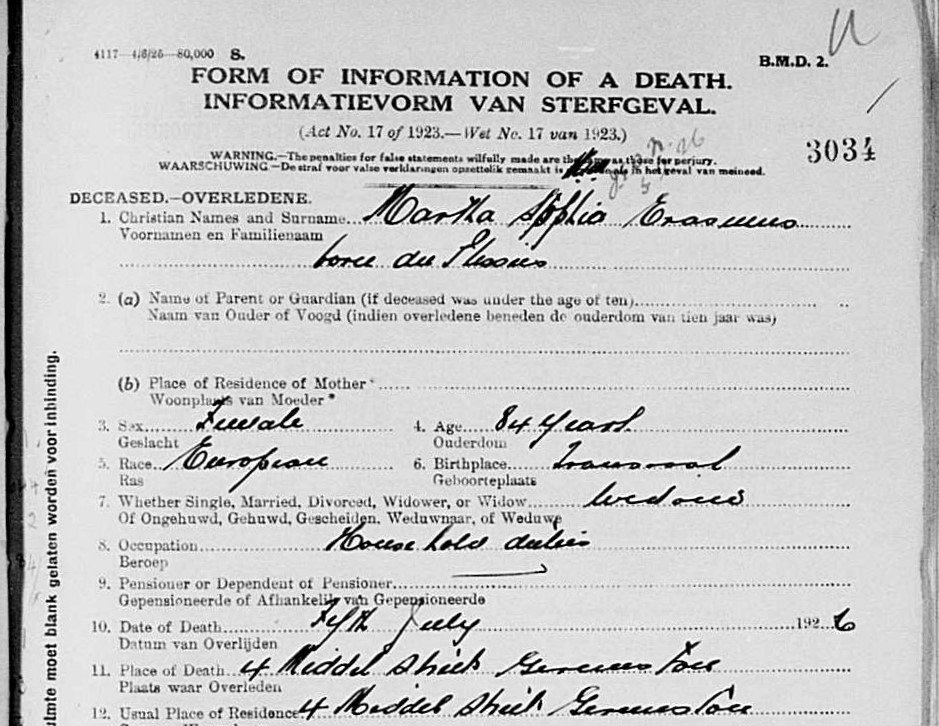 4117—4/6/25—80,000 S.
B.M.D. 2.
FORM OF INFORMATION OF A DEATH.
INFORMATIEVORM VAN STERFGEVAL.
(Act No. 17 of 1923.—Wet No. 17 van 1923.)
WARNING.—The penalties for false statements wilfully made are the same as those for perjury.
WAARSCHUWING.—De straf voor valse verklaringen opzettelik gemaakt is als in het geval van meineed.
3034
DECEASED.—OVERLEDENE.
1. Christian Names and Surname Martha Sophia Erasmus
Voornamen en Familienaam
born du Plessis
2. (a) Name of Parent or Guardian (if deceased was under the age of ten)
Naam van Ouder of Voogd (indien overledene beneden de ouderdom van tien jaar was)
(b) Place of Residence of Mother*
Woonplaats van Moeder*
3. Sex Female 4. Age 84 Years
Geslacht Ouderdom
5. Race European 6. Birthplace Transvaal
Ras Geboorteplaats
7. Whether Single, Married, Divorced, Widower, or Widow Widow
Of Ongehuwd, Gehuwd, Gescheiden, Weduwnaar, of Weduwe
8. Occupation Household duties
Beroep
9. Pensioner or Dependent of Pensioner
Gepensioneerde of Afhankelik van Gepensioneerde
10. Date of Death Fifth July 1926
Datum van Overlijden
11. Place of Death 4 Middel Street Germiston
Plaats waar Overleden
12. Usual Place of Residence 4 Middel Street Germiston
ulmte moet blank gelaten worden voor inbinding.